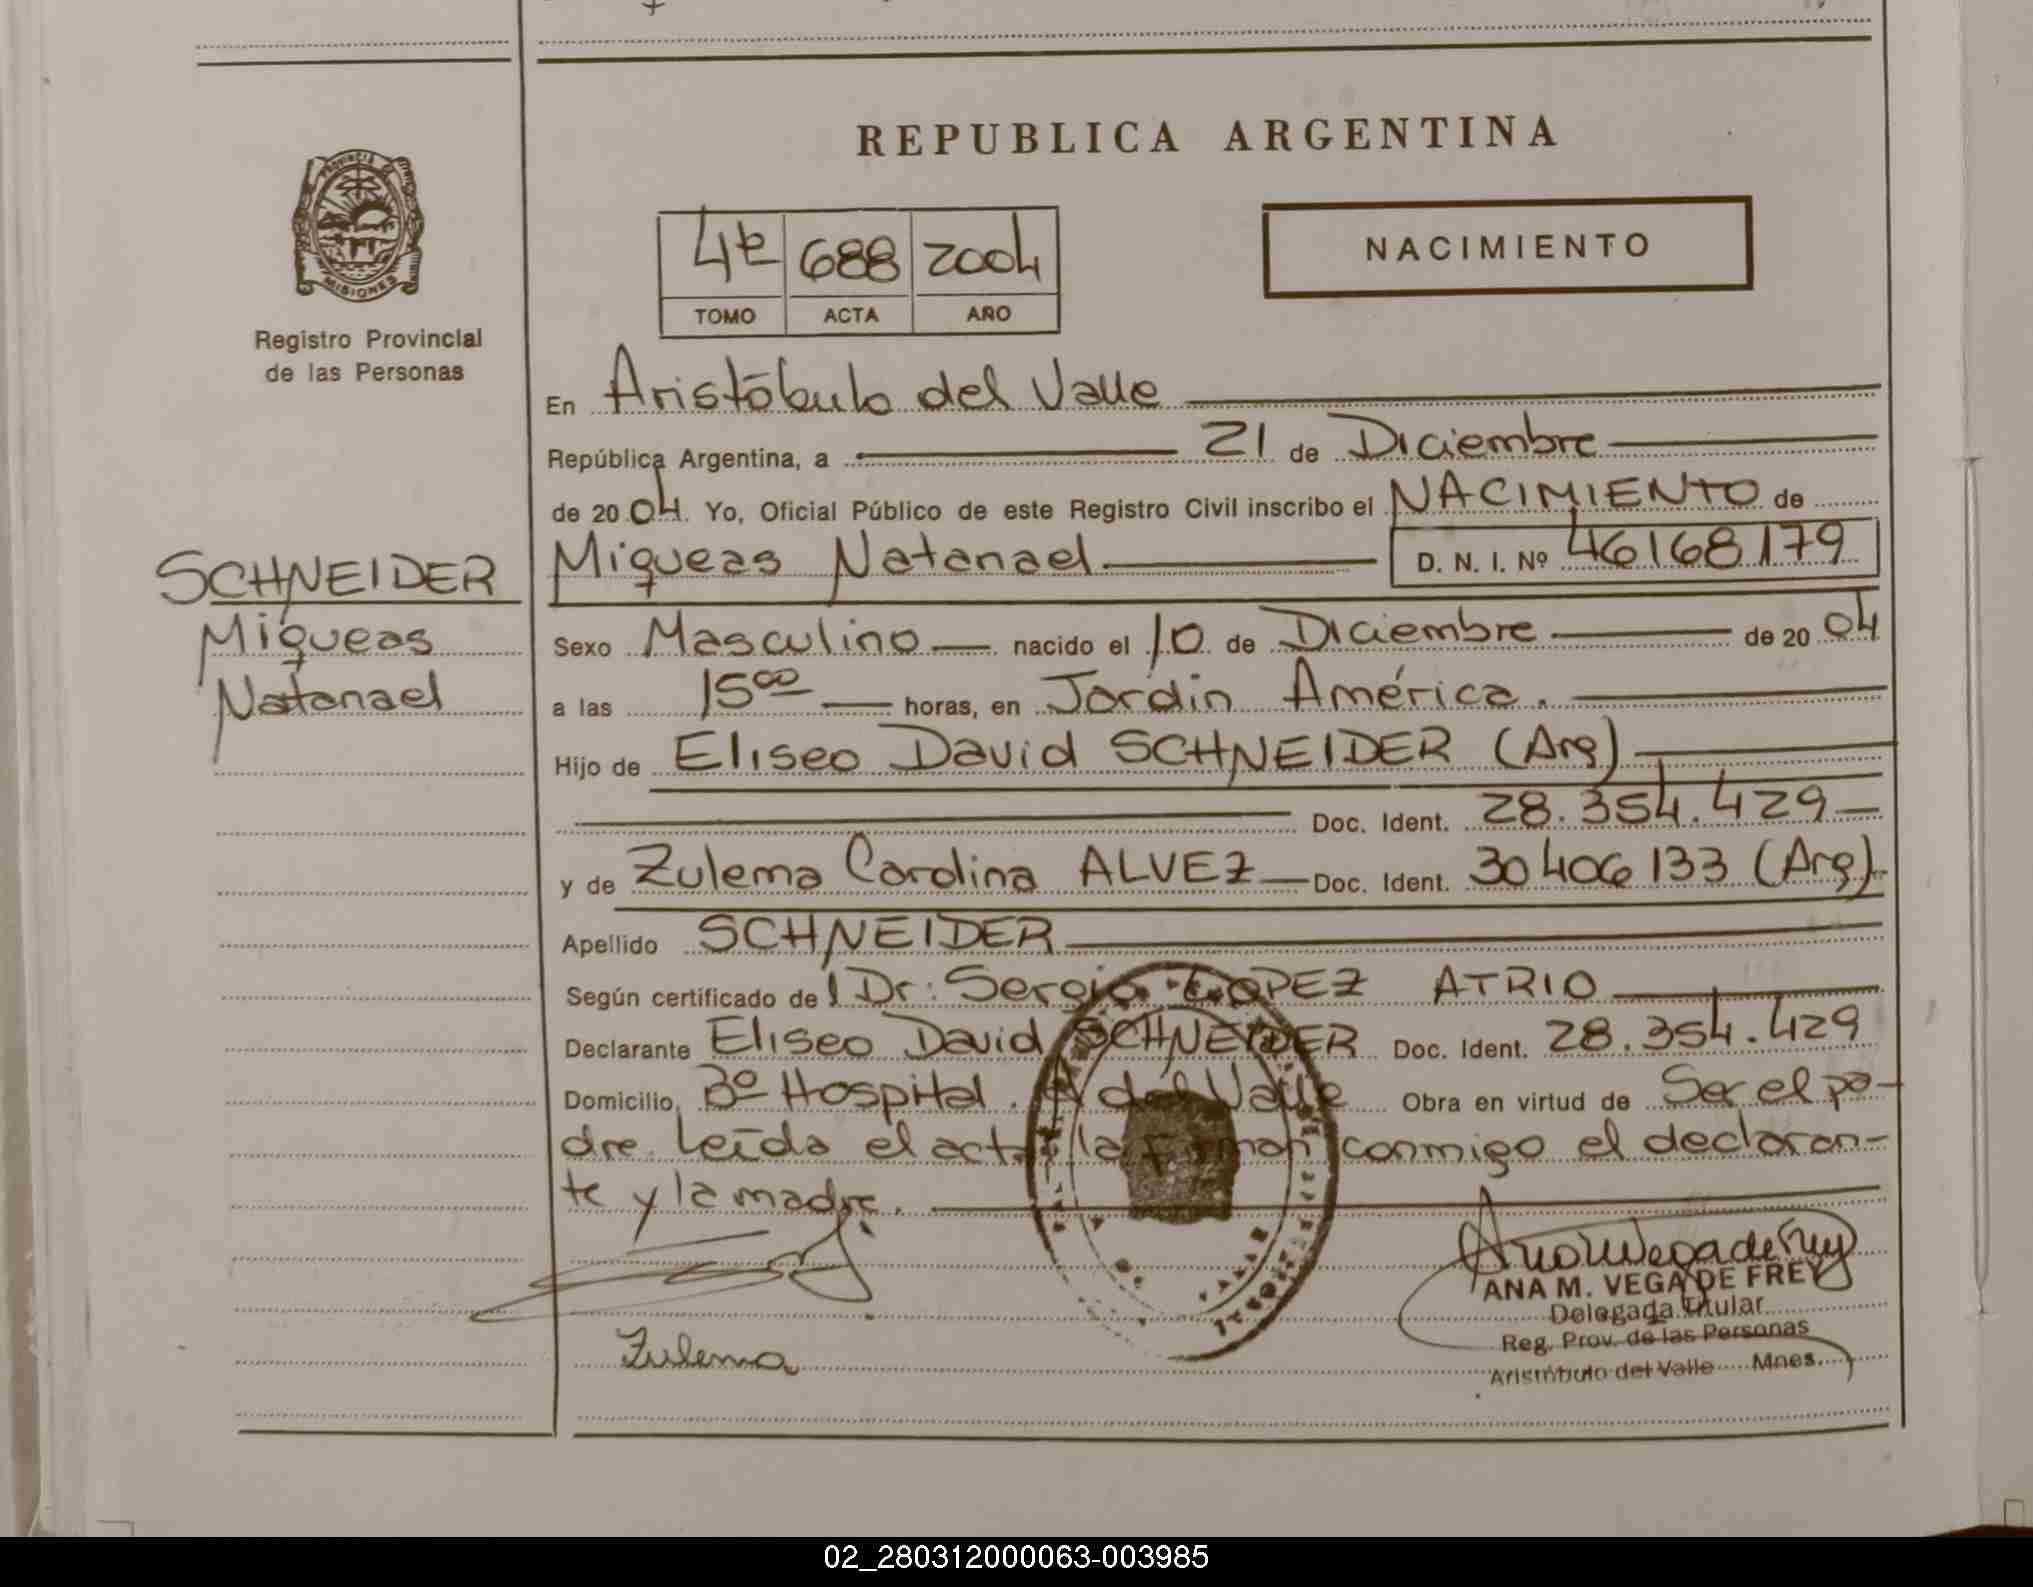 REPUBLICA ARGENTINA
PROVINCIA
MISIONES
Registro Provincial
de las Personas
4t 688 2004
TOMO ACTA AÑO
NACIMIENTO
En Aristóbulo del Valle
República Argentina, a 21 de Diciembre
de 2004. Yo, Oficial Público de este Registro Civil inscribo el NACIMIENTO de
Miqueas Natanael D. N. I. Nº 46168179
SCHNEIDER
Miqueas
Natanael
Sexo Masculino nacido el 10 de Diciembre de 2004
a las 15 00 horas, en Jardin América.
Hijo de Eliseo David SCHNEIDER (Arg)
Doc. Ident. 28.354.429
y de Zulema Carolina ALVEZ Doc. Ident. 30406133 (Arg)
Apellido SCHNEIDER
Según certificado del Dr. Sergio LOPEZ ATRIO
Declarante Eliseo David SCHNEIDER Doc. Ident. 28.354.429
Domicilio, Bº Hospital. A del Valle Obra en virtud de Ser el pa-
dre. Leída el acta la firman conmigo el declaran-
te y la madre.
Zulema
ANA M. VEGA DE FREY
Delegada Titular
Reg. Prov. de las Personas
Aristóbulo del Valle Mnes.
02_280312000063-003985